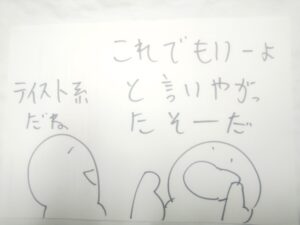 これでもけーよ
と言いやがっ
たそーだ
テイスト系
だね